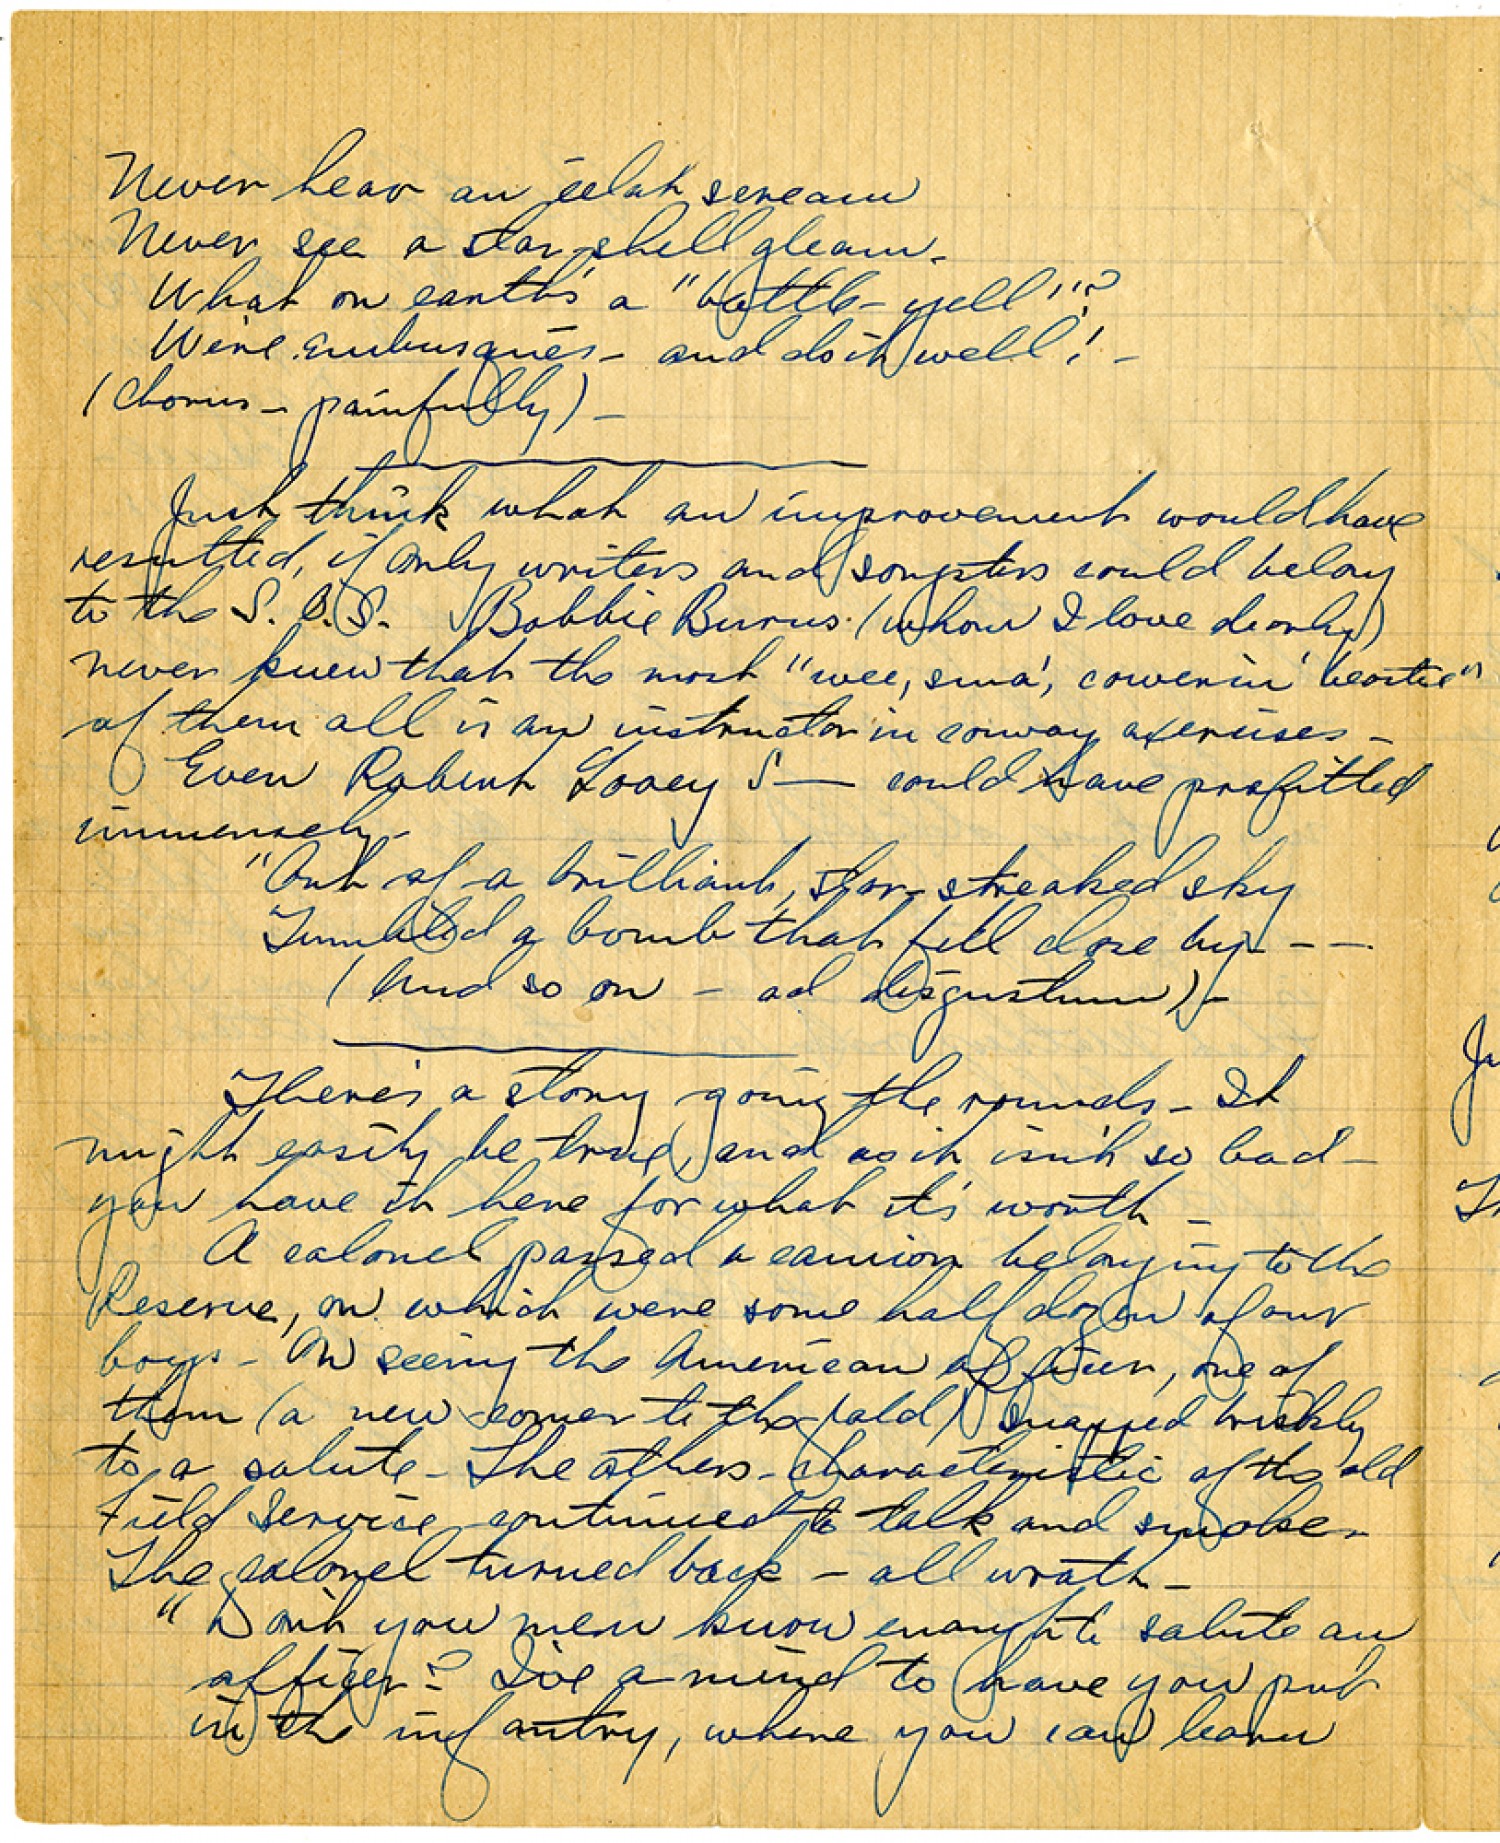 Never hear an éclat scream
Never see a star-shell gleam.
What on earth's a "battle-yell"?
We're embusqués - and do it well! -
(Chorus - painfully) -
Just think what an improvement would have
resulted, if only writers and songsters could belong
to the S.O.S. Bobbie Burns (whom I love dearly)
never knew that the most "wee, sma', cowerin' beastie"
of them all is an instructor in convoy exercises -
Even Robert Looey S— could have profitted
immensely -
"Out of a brilliant, star-streaked sky
Tumbled a bomb that fell close by - - -
(And so on - ad disgustum) -
There's a story going the rounds - It
might easily be true, and as it isn't so bad -
you have it here for what it's worth -
A colonel passed a camion belonging to the
Reserve, on which were some half dozen of our
boys - On seeing the American officer, one of
them (a new-comer to the fold) snapped briskly
to a salute - The others - characteristic of the old
Field Service continued to talk and smoke -
The colonel turned back - all wrath -
"Don't you men know enough to salute an
officer? I've a mind to have you put
in the infantry, where you can learn
Ju
Th